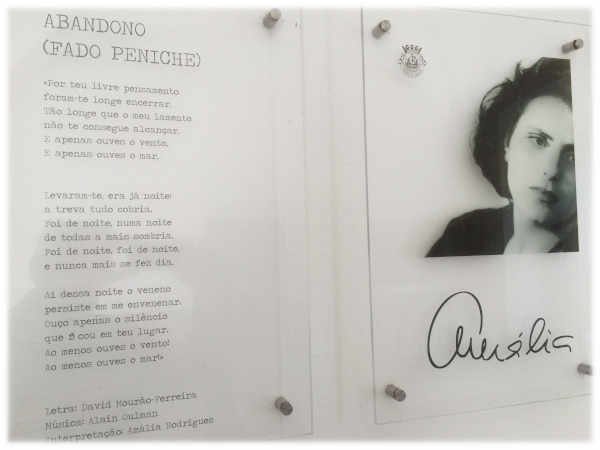 ABANDONO
(FADO PENICHE)
«Por teu livre pensamento
foram-te longe encerrar.
Tão longe que o meu lamento
não te consegue alcançar.
E apenas ouves o vento.
E apenas ouves o mar.
Levaram-te, era já noite:
a treva tudo cobria.
Foi de noite, numa noite
de todas a mais sombria.
Foi de noite, foi de noite,
e nunca mais se fez dia.
Ai dessa noite o veneno
persiste em me envenenar.
Ouço apenas o silêncio
que ficou em teu lugar.
Ao menos ouves o vento!
Ao menos ouves o mar!»
Letra: David Mourão-Ferreira
Música: Alain Oulman
Interpretação: Amália Rodrigues
Amália